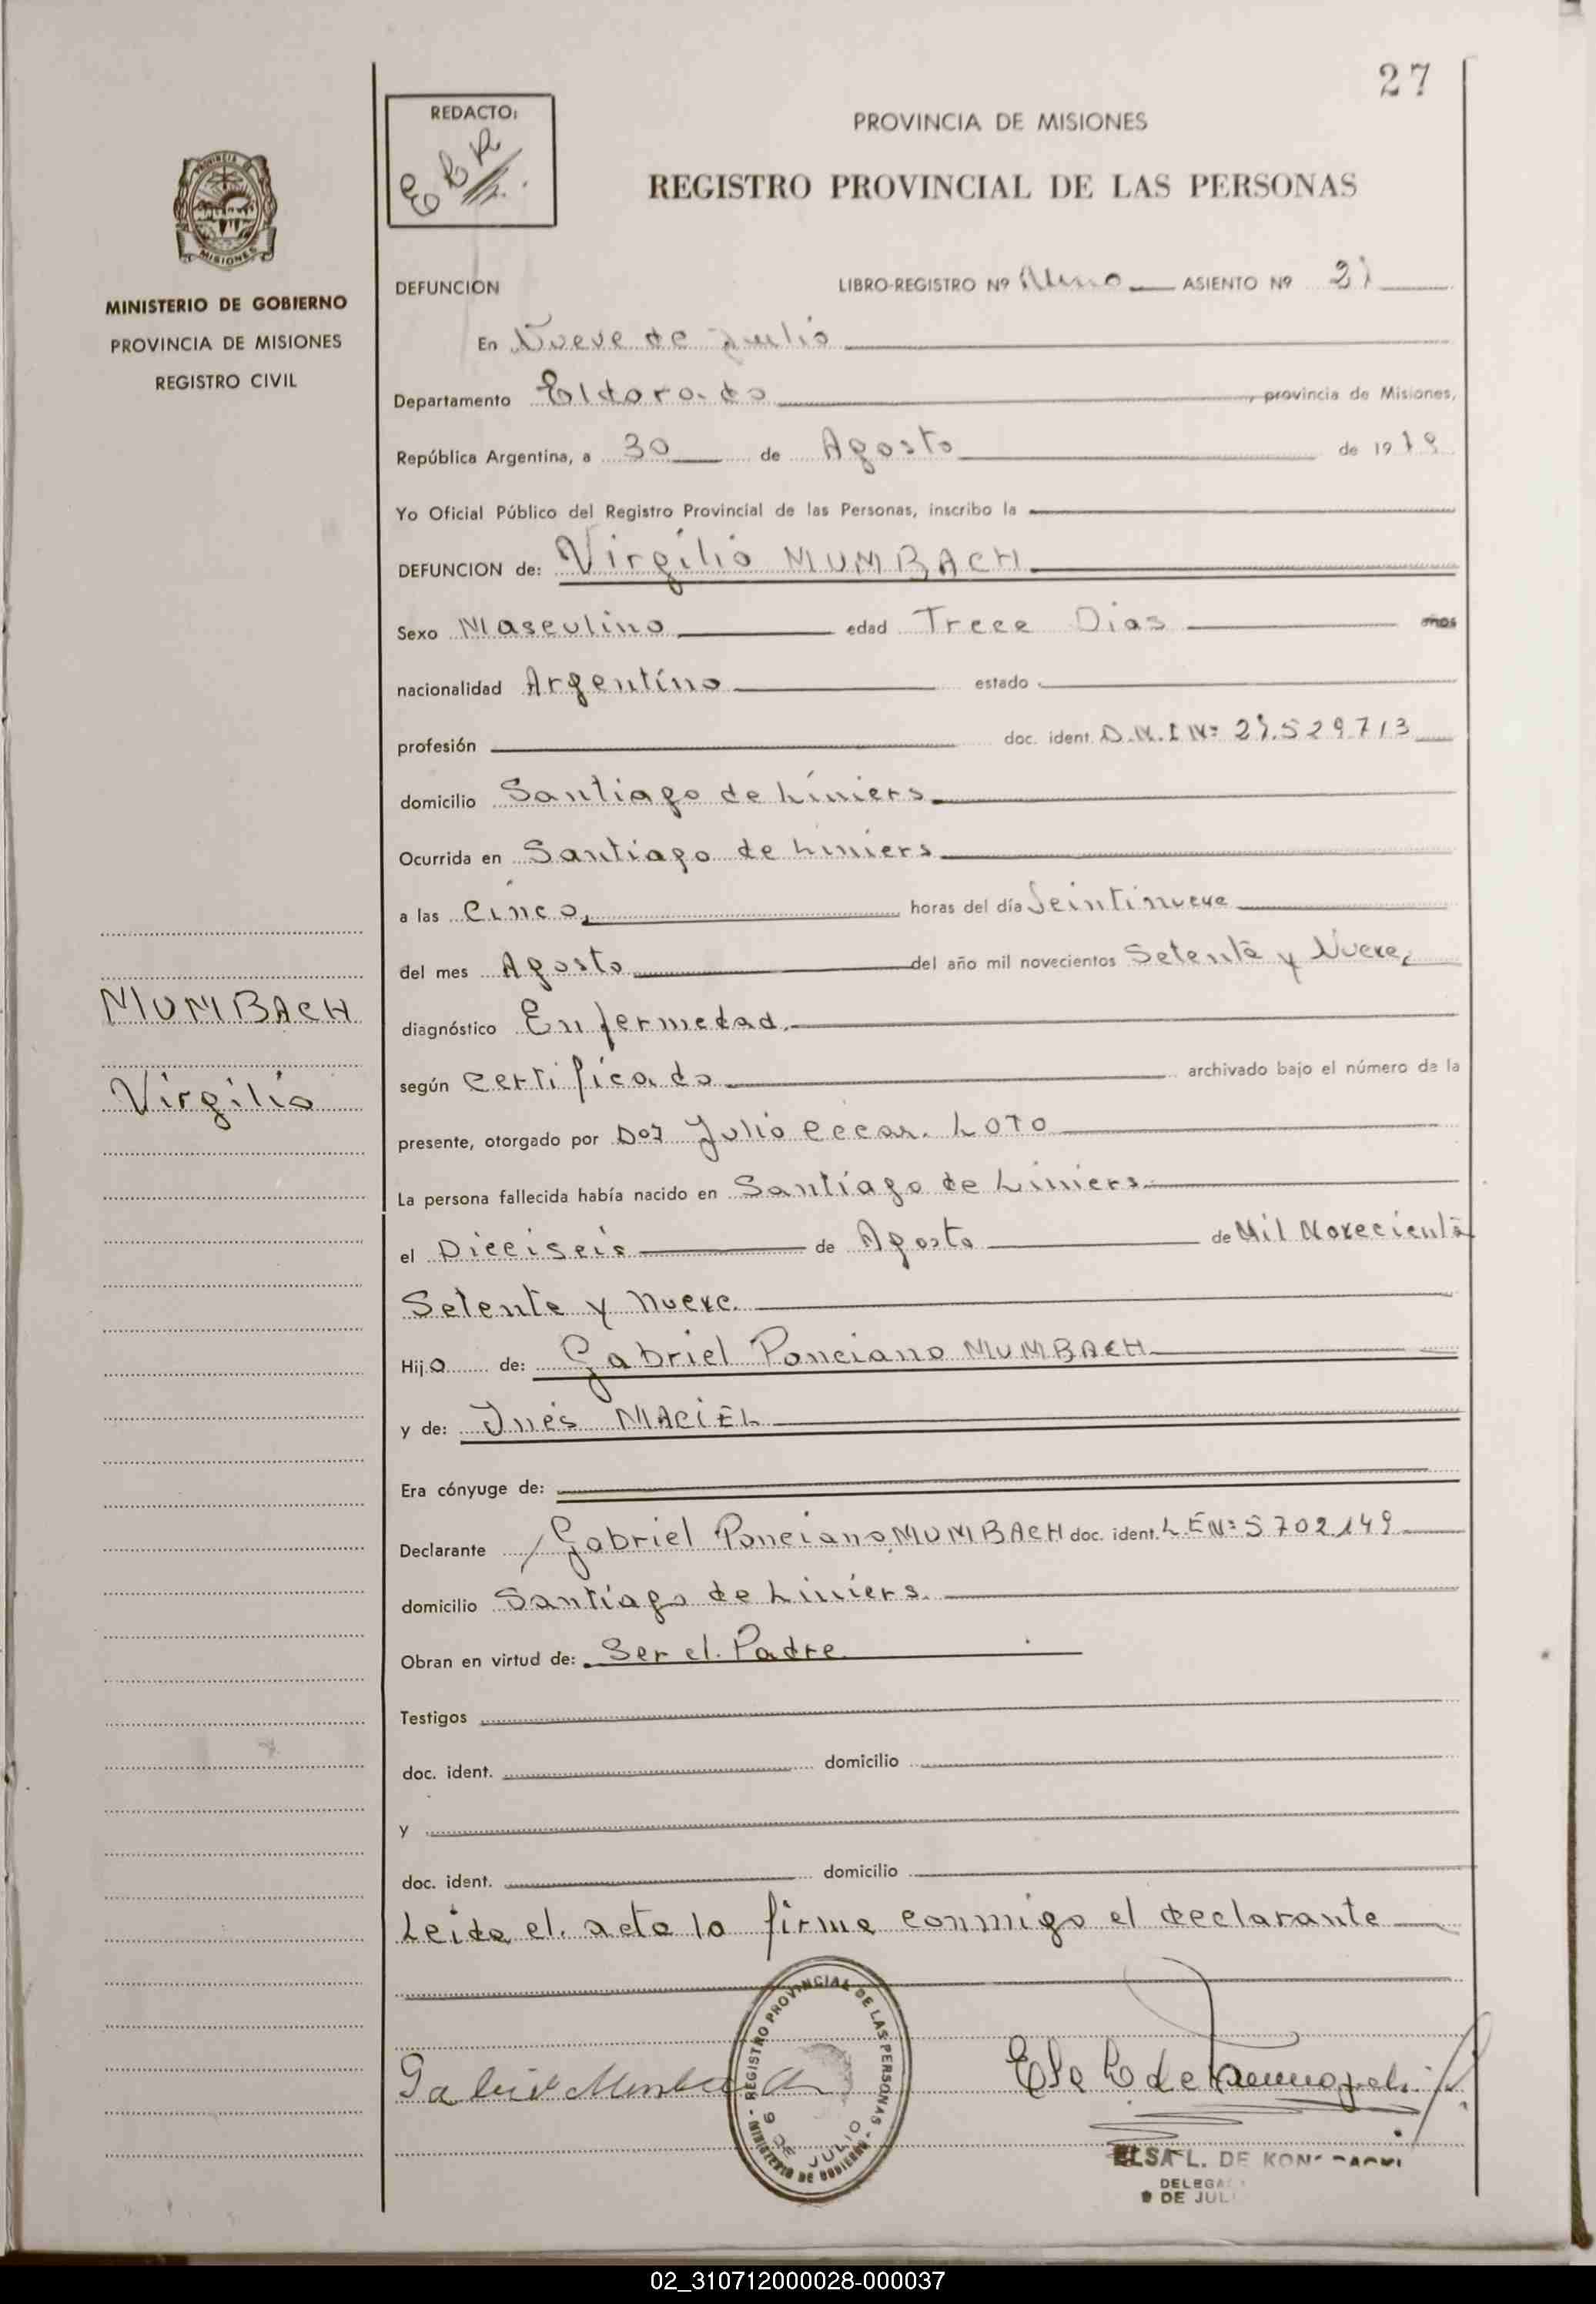 27
REDACTO:
PROVINCIA DE MISIONES
REGISTRO PROVINCIAL DE LAS PERSONAS
PROVINCIA DE
MISIONES
MINISTERIO DE GOBIERNO
PROVINCIA DE MISIONES
REGISTRO CIVIL
DEFUNCION LIBRO-REGISTRO Nº ASIENTO Nº
En Nueve de Julio
Departamento Eldorado, provincia de Misiones,
República Argentina, a 30 de Agosto de 1979
Yo Oficial Público del Registro Provincial de las Personas, inscribo la
DEFUNCION de: Virgilio MUMBACH
Sexo Masculino edad Trece Dias
nacionalidad Argentino estado
profesión doc. ident. D.N.I Nº 27.529.713
domicilio Santiago de Liniers
Ocurrida en Santiago de Liniers
a las Cinco, horas del día Veintinueve
del mes Agosto del año mil novecientos Setenta y Nueve,
MUMBACH
Virgilio
diagnóstico Enfermedad.
según Certificado archivado bajo el número de la
presente, otorgado por Julio LOTO
La persona fallecida había nacido en Santiago de Liniers
el Dieciseis de Agosto de Mil Novecientos
Setenta y Nueve.
Hijo de: Gabriel Ponciano MUMBACH
y de: Inés MACIEL
Era cónyuge de:
Declarante Gabriel Ponciano MUMBACH doc. ident. L.E Nº 5702.149
domicilio Santiago de Liniers.
Obran en virtud de: Ser el Padre
Testigos
doc. ident. domicilio
y
doc. ident. domicilio
Leida el acta la firma conmigo el declarante
REGISTRO PROVINCIAL DE LAS PERSONAS
MINISTERIO DE GOBIERNO
9 DE JULIO
ELSA L. DE
9 DE JUL
02_310712000028-000037